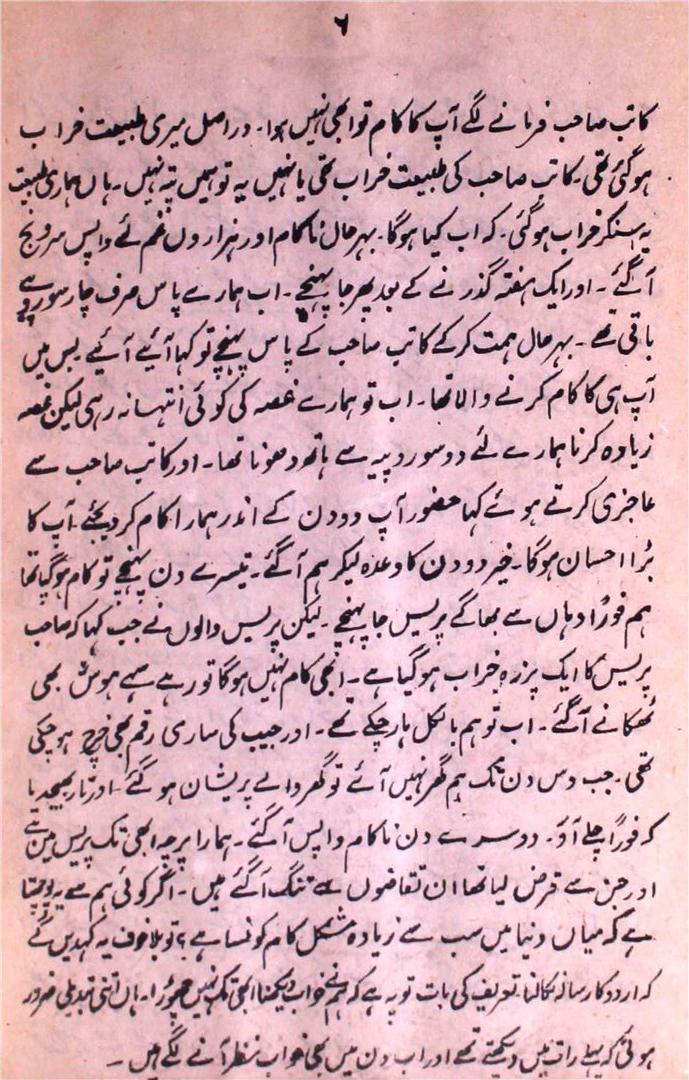 ۶
کاتب صاحب فرمانے لگے آپ کا کام تو ابھی نہیں ہوا۔ دراصل میری طبیعت خراب
ہوگئی تھی۔ کاتب صاحب کی طبیعت خراب تھی یا نہیں یہ تو ہمیں پتہ نہیں۔ ہاں ہماری طبیعت
یہ سنکر خراب ہوگئی۔ کہ اب کیا ہوگا۔ بہرحال ناکام اور ہزاروں غم لئے واپس سرونج
آگئے۔ اور ایک ہفتہ گذرنے کے بعد پھر جا پہنچے۔ اب ہمارے پاس صرف چار سو روپے
باقی تھے۔ بہرحال ہمت کرکے کاتب صاحب کے پاس پہنچے تو کہا آئیے آئیے بس میں
آپ ہی کا کام کرنے والا تھا۔ اب تو ہمارے غصہ کی کوئی انتہا نہ رہی لیکن غصہ
زیادہ کرنا ہمارے لئے دو سو روپیہ سے ہاتھ دھونا تھا۔ اور کاتب صاحب سے
عاجزی کرتے ہوئے کہا حضور آپ دو دن کے اندر ہمارا کام کر دیجئے۔ آپ کا
بڑا احسان ہوگا۔ خیر دو دن کا وعدہ لیکر ہم آگئے۔ تیسرے دن پہنچے تو کام ہوگیا تھا
ہم فوراً وہاں سے بھاگے پریس جا پہنچے۔ لیکن پریس والوں نے جب کہا کہ صاحب
پریس کا ایک پرزہ خراب ہو گیا ہے۔ ابھی کام نہیں ہوگا تو رہے سہے ہوش بھی
ٹھکانے آگئے۔ اب تو ہم بالکل ہار چکے تھے۔ اور جیب کی ساری رقم بھی خرچ ہو چکی
تھی۔ جب دس دن تک ہم گھر نہیں آئے تو گھر والے پریشان ہو گئے۔ اور تار بھیجدیا
کہ فوراً چلے آؤ۔ دوسرے دن ناکام واپس آگئے۔ ہمارا پرچہ ابھی تک پریس میں ہے
اور جن سے قرض لیا تھا ان تقاضوں سے تنگ آگئے ہیں۔ اگر کوئی ہم سے یہ پوچھتا
ہے کہ میاں دنیا میں سب سے زیادہ مشکل کام کونسا ہے؟ تو بلا خوف یہ کہدیں گے
کہ اردو کا رسالہ نکالنا۔ تعریف کی بات تو یہ ہے کہ ہم نے خواب دیکھنا ابھی تک نہیں چھوڑا۔ ہاں اتنی تبدیلی ضرور
ہوئی کہ پہلے رات میں دیکھتے تھے اور اب دن میں بھی خواب نظر آنے لگے ہیں۔